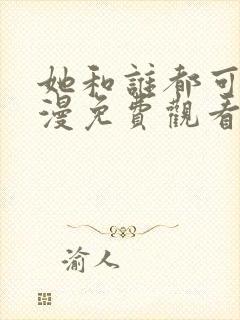 她和誰都可
漫免費觀看
渝人